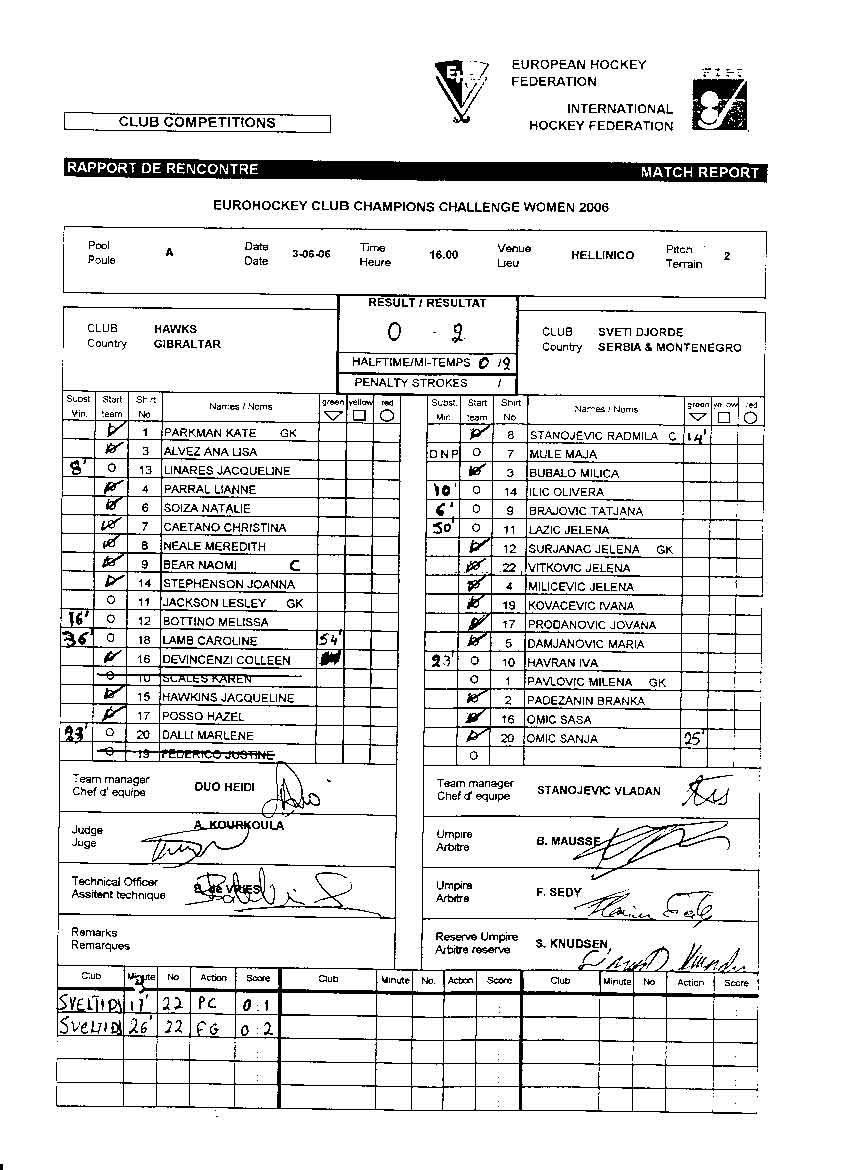 EUROPEAN HOCKEY
FEDERATION
INTERNATIONAL
HOCKEY FEDERATION
CLUB COMPETITIONS
RAPPORT DE RENCONTRE MATCH REPORT
EUROHOCKEY CLUB CHAMPIONS CHALLENGE WOMEN 2006
Pool A Date 3-06-06 Time 16.00 Venue HELLINICO Pitch 2
Poule Date Heure Lieu Terrain
RESULT / RESULTAT
0 - 2
HALFTIME/MI-TEMPS 0 / 2
PENALTY STROKES /
CLUB HAWKS
Country GIBRALTAR
CLUB SVETI DJORDE
Country SERBIA & MONTENEGRO
Subst. Start Shirt Names / Noms green yellow red
Min. team No
1 PARKMAN KATE GK
3 ALVEZ ANA LISA
8' O 13 LINARES JACQUELINE
4 PARRAL LIANNE
6 SOIZA NATALIE
7 CAETANO CHRISTINA
8 NEALE MEREDITH
9 BEAR NAOMI C
14 STEPHENSON JOANNA
O 11 JACKSON LESLEY GK
16' O 12 BOTTINO MELISSA
36' O 18 LAMB CAROLINE 54'
16 DEVINCENZI COLLEEN
O 10 SCALES KAREN
15 HAWKINS JACQUELINE
17 POSSO HAZEL
23' O 20 DALLI MARLENE
O 19 FEDERICO JUSTINE
Subst. Start Shirt Names / Noms green yellow red
Min. team No
8 STANOJEVIC RADMILA C 14'
DNP O 7 MULE MAJA
3 BUBALO MILICA
10' O 14 ILIC OLIVERA
6' O 9 BRAJOVIC TATJANA
50' O 11 LAZIC JELENA
12 SURJANAC JELENA GK
22 VITKOVIC JELENA
4 MILICEVIC JELENA
19 KOVACEVIC IVANA
17 PRODANOVIC JOVANA
5 DAMJANOVIC MARIA
23' O 10 HAVRAN IVA
O 1 PAVLOVIC MILENA GK
2 PADEZANIN BRANKA
16 OMIC SASA
20 OMIC SANJA 25'
O
Team manager DUO HEIDI
Chef d' equipe
Team manager STANOJEVIC VLADAN
Chef d' equipe
Judge A. KOURKOULA
Juge
Umpire B. MAUSSE
Arbitre
Technical Officer B. de VRIES
Assitent technique
Umpire F. SEDY
Arbitre
Remarks
Remarques
Reserve Umpire S. KNUDSEN
Arbitre reserve
Club Minute No Action Score Club Minute No. Action Score Club Minute No Action Score
SVETIDJ 17' 22 PC 0:1
SVETIDJ 26' 22 FG 0:2